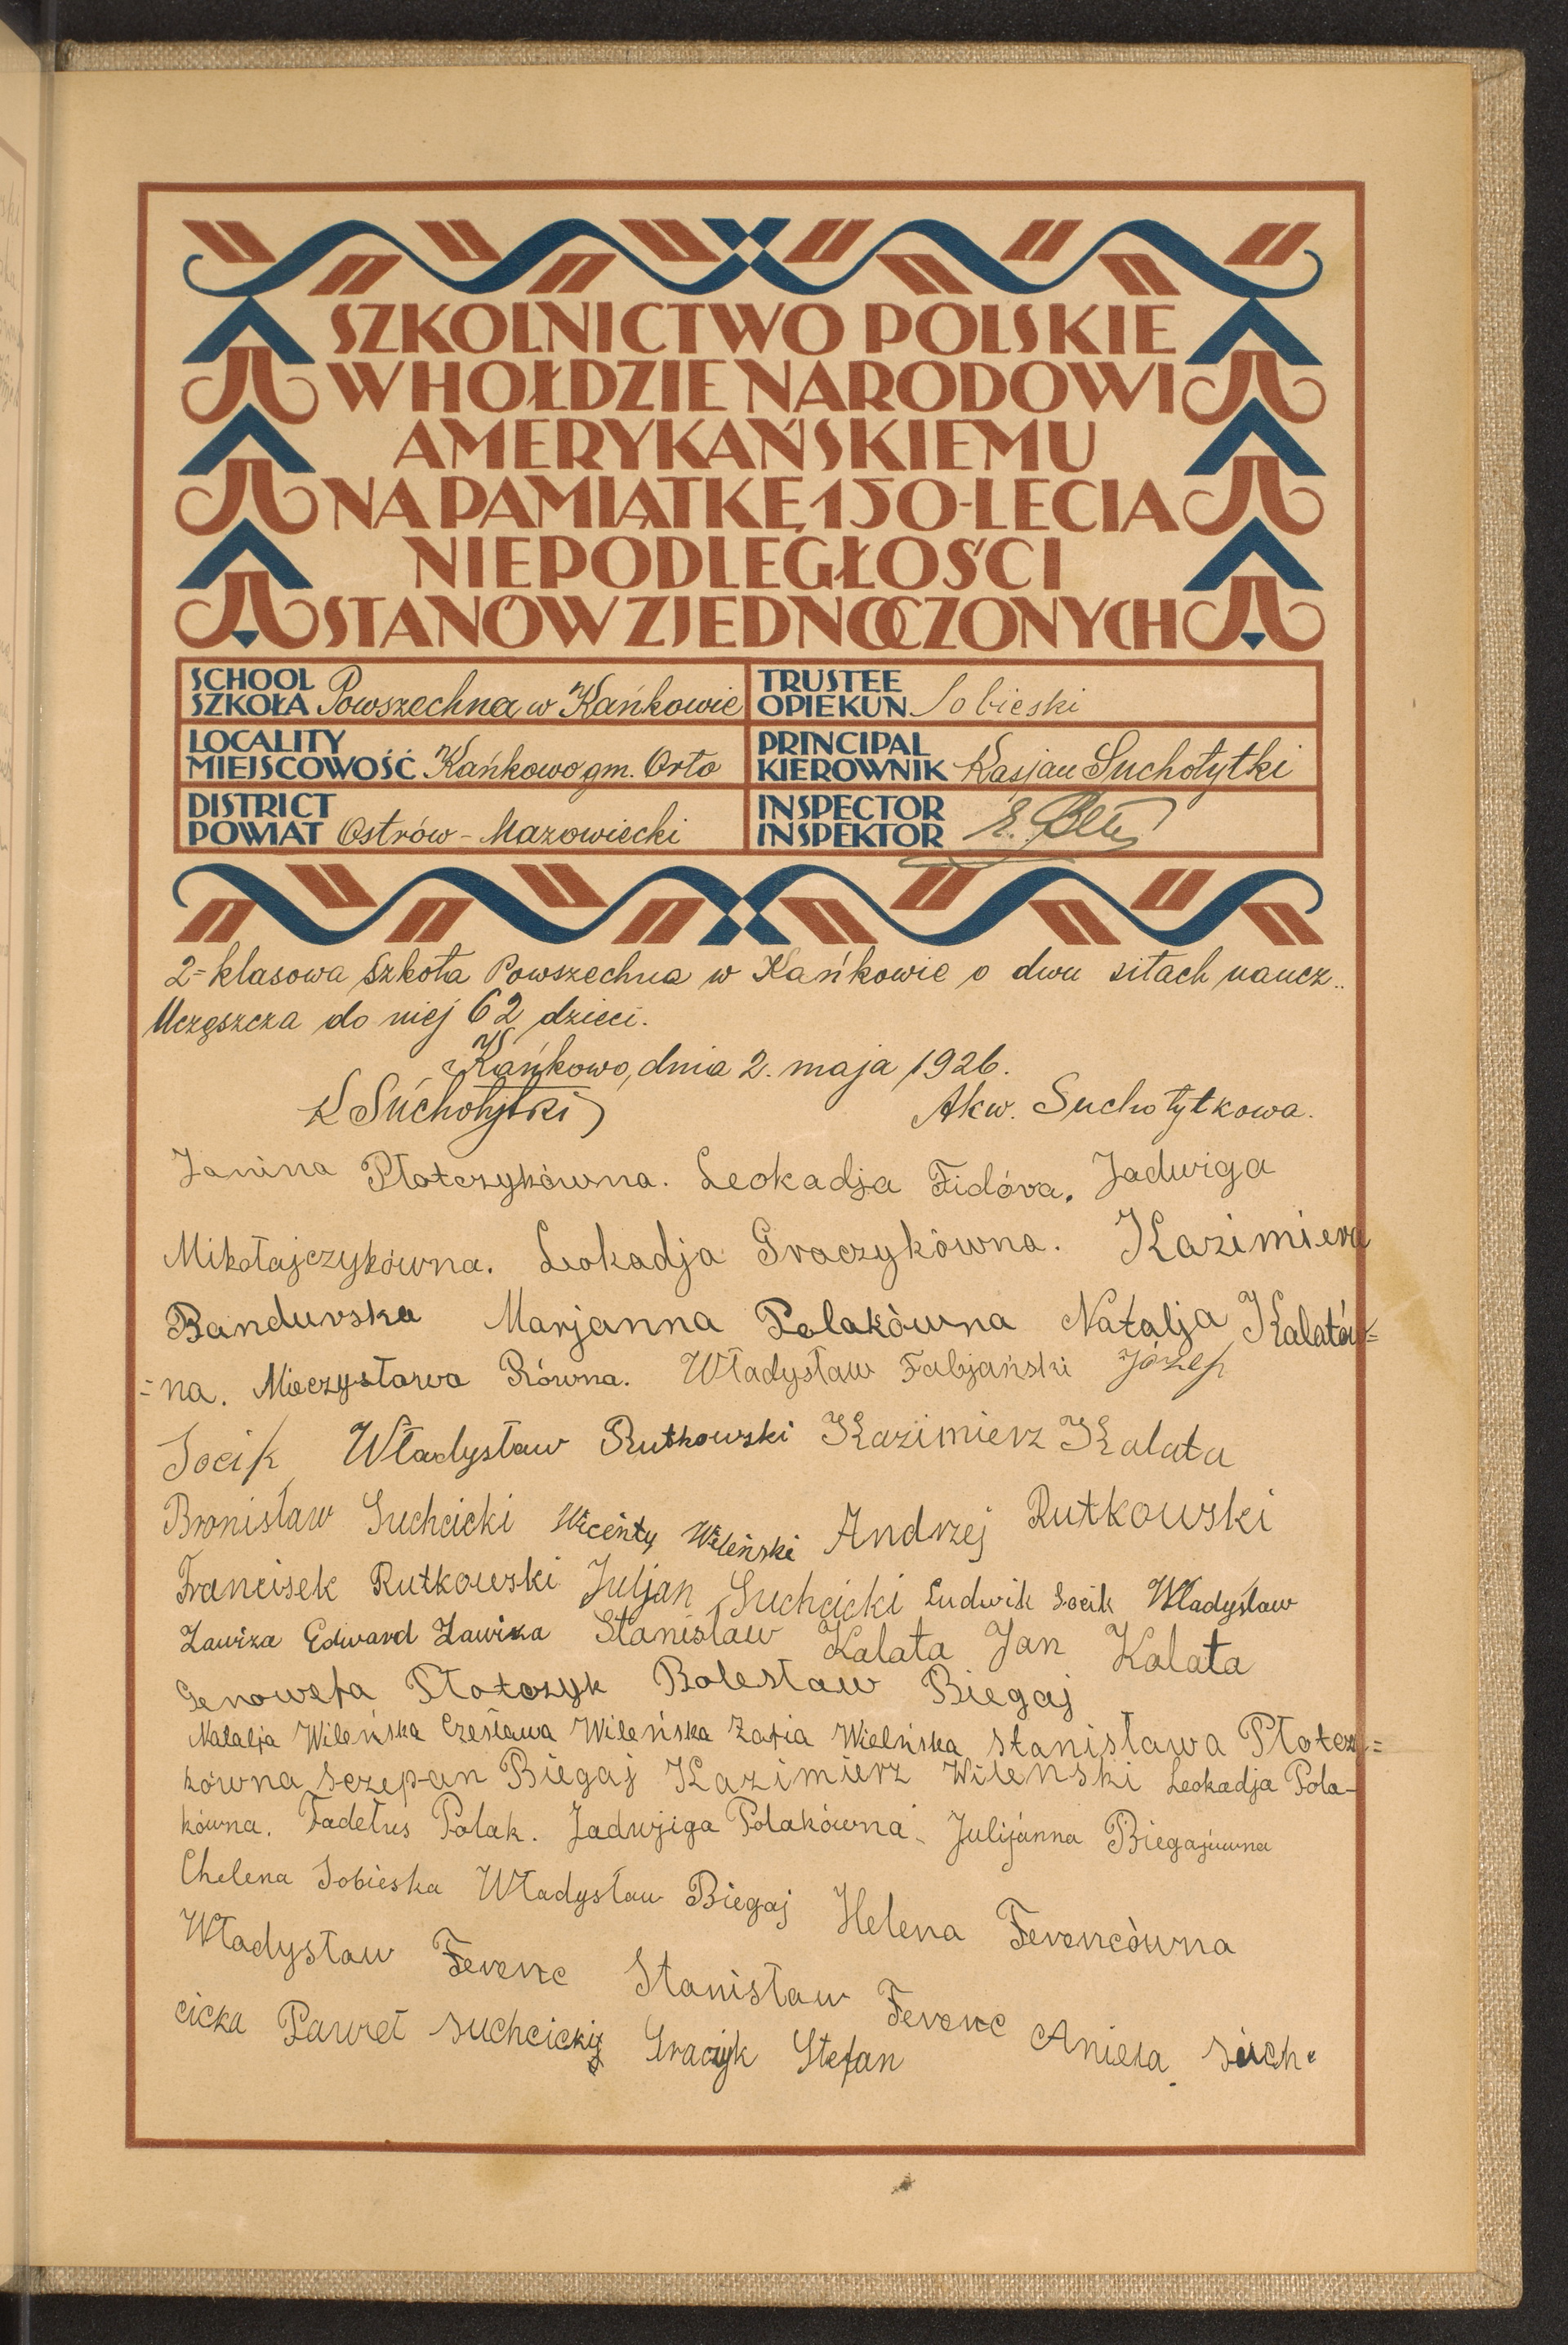 SZKOLNICTWO POLSKIE
W HOŁDZIE NARODOWI
AMERYKAŃSKIEMU
NA PAMIĄTKĘ 150-LECIA
NIEPODLEGŁOŚCI
STANÓW ZJEDNOCZONYCH
SCHOOL
SZKOŁA Powszechna w Kańkowie
TRUSTEE
OPIEKUN Sobieski
LOCALITY
MIEJSCOWOŚĆ Kańkowo gm. Orło
PRINCIPAL
KIEROWNIK Kasjan Suchołytki
DISTRICT
POWIAT Ostrów - Mazowiecki
INSPECTOR
INSPEKTOR
2=klasowa Szkoła Powszechna w Kańkowie o dwu siłach naucz..
Uczęszcza do niej 62 dzieci.
Kańkowo, dnia 2. maja 1926.
K Suchołytki Akw. Suchołytkowa.
Janina Płotczykówna. Leokadja Fidóra. Jadwiga
Mikołajczykówna. Leokadja Graczykówna. Kazimiera
Bandurska Marjanna Polakówna Natalja Kalatów=
=na. Mieczysława Równa. Władysław Fabjański Józef
Socik Władysław Rutkowski Kazimierz Kalata
Bronisław Suchcicki Wicenty Wileński Andrzej Rutkowski
Francisek Rutkowski Juljan Suchcicki Ludwik Socik Władysław
Zawiza Edward Zawiza Stanisław Kalata Jan Kalata
Genowefa Płotczyk Bolesław Biegaj
Natalja Wileńska Czesława Wileńska Zofia Wielńska Stanisława Płotczy=
kówna Sczepan Biegaj Kazimierz Wilenski Leokadja Pola-
kówna. Tadełus Polak. Jadwjiga Polakówna. Julijánna Biegajuwna
Chelena Sobieska Władysław Biegaj Helena Ferencówna
Władysław Ferenc Stanisław Ferenc Aniela Such-
cicka Paweł Suchcicki Graczyk Stefan